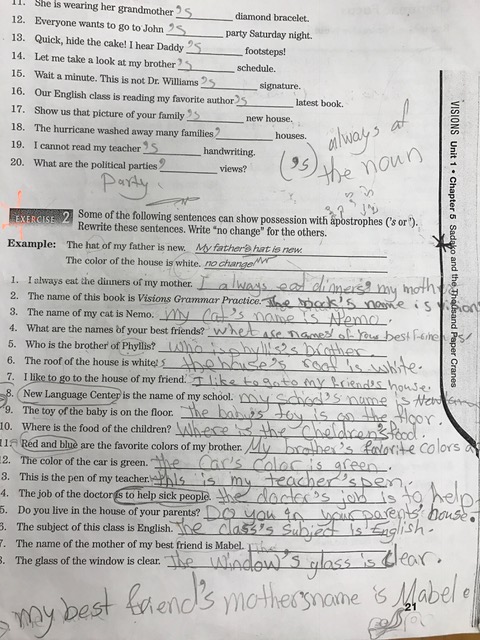 11. She is wearing her grandmother 's diamond bracelet.
12. Everyone wants to go to John 's party Saturday night.
13. Quick, hide the cake! I hear Daddy 's footsteps!
14. Let me take a look at my brother 's schedule.
15. Wait a minute. This is not Dr. Williams 's signature.
16. Our English class is reading my favorite author 's latest book.
17. Show us that picture of your family 's new house.
18. The hurricane washed away many families ' houses.
19. I cannot read my teacher 's handwriting.
20. What are the political parties ' views?
Party.
('s) always at
the noun
EXERCISE 2 Some of the following sentences can show possession with apostrophes ('s or ').
Rewrite these sentences. Write "no change" for the others.
Example: The hat of my father is new. My father's hat is new.
The color of the house is white. no change
1. I always eat the dinners of my mother. I always eat dinners my moth
2. The name of this book is Visions Grammar Practice. The book's name is vision
3. The name of my cat is Nemo. my cat's name is Nemo.
4. What are the names of your best friends? what are names of your best friends
5. Who is the brother of Phyllis? who is phyllis's brother
6. The roof of the house is white. the house's roof is white.
7. I like to go to the house of my friend. I like to go to my friend's house.
8. New Language Center is the name of my school. my school's name is New
9. The toy of the baby is on the floor. The baby's toy is on the floor.
10. Where is the food of the children? where is the children's food.
11. Red and blue are the favorite colors of my brother. My brother's favorite colors a
2. The color of the car is green. the car's color is green.
3. This is the pen of my teacher. this is my teacher's pen.
4. The job of the doctor is to help sick people. the doctor's job is to help
5. Do you live in the house of your parents? DO you in your parents' house.
6. The subject of this class is English. The class's subject is English.
7. The name of the mother of my best friend is Mabel. the
8. The glass of the window is clear. The window's glass is clear.
my best friend's mother's name is Mabel.
21
VISIONS Unit 1 • Chapter 5 Sadako and the Thousand Paper Cranes